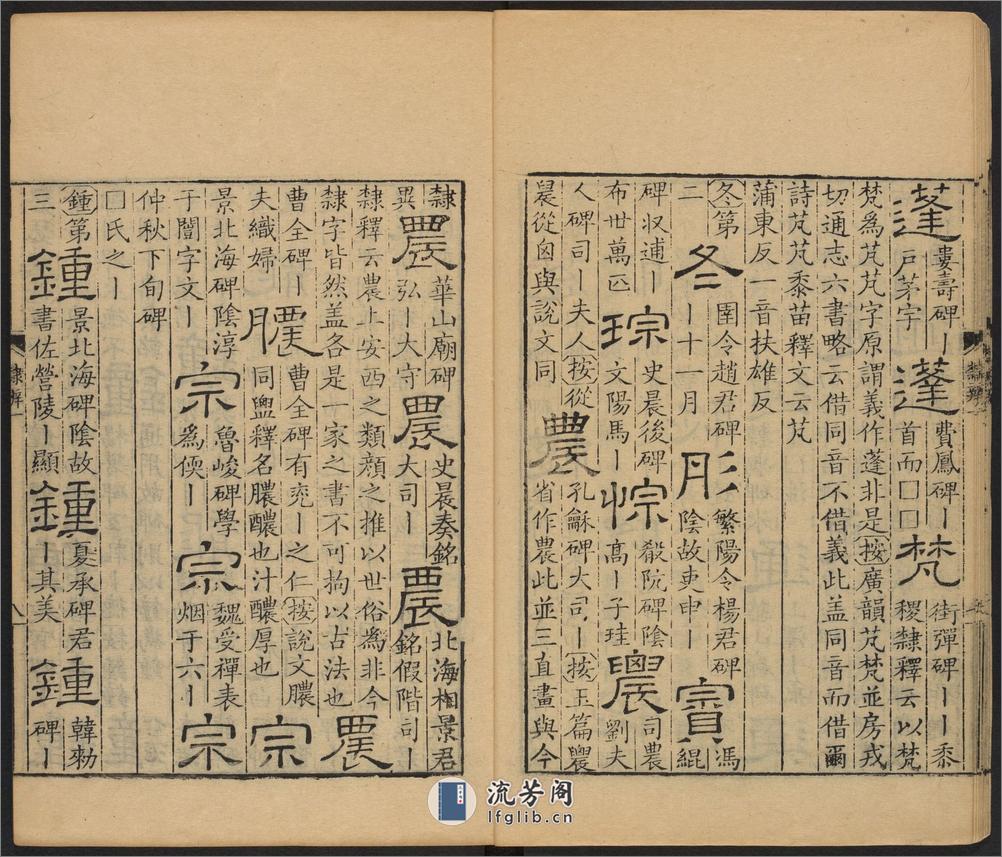 蓬
婁壽碑丨
戶茅宇
蓬
費鳳碑丨
首而囗囗
梵
街彈碑丨丨黍
稷隸釋云以梵
梵爲芃芃字原謂義作蓬非是按廣韻芃梵並房戎
切通志六書略云借同音不借義此盖同音而借爾
詩芃芃黍苗釋文云芃
蒲東反一音扶雄反
冬第
二
冬
圉令趙君碑
丨十一月
彤
繁陽令楊君碑
陰故吏申丨
賨
馮
緄
碑収逋丨
布世萬匹
琮
史晨後碑
文陽馬丨
悰
殽阬碑陰
高丨子珪
農
司農
劉夫
人碑司丨夫人按從
晨從囟與說文同
農
孔龢碑大司丨按玉篇
省作農此並三直畫與今
隸
異
農
華山廟碑
弘丨大守
農
史晨奏銘
大司丨
農
北海相景君
銘假階司丨
隸釋云農上安西之類顏之推以世俗爲非今
隸字皆然盖各是一家之書不可拘以古法也
農
曹全碑丨
夫織婦
膿
曹全碑有兖丨之仁按說文膿
同盥釋名膿醲也汁醲厚也
宗
景北海碑陰淳
于誾字文丨
宗
魯峻碑學
爲偰丨
宗
魏受禪表
烟于六丨
宗
仲秋下旬碑
囗氏之丨
鍾第
三
鍾
景北海碑陰故
書佐營陵丨顯
鍾
夏承碑君
丨其美
鍾
韓勑
碑丨
隸辨一
流芳阁
lfglib.cn